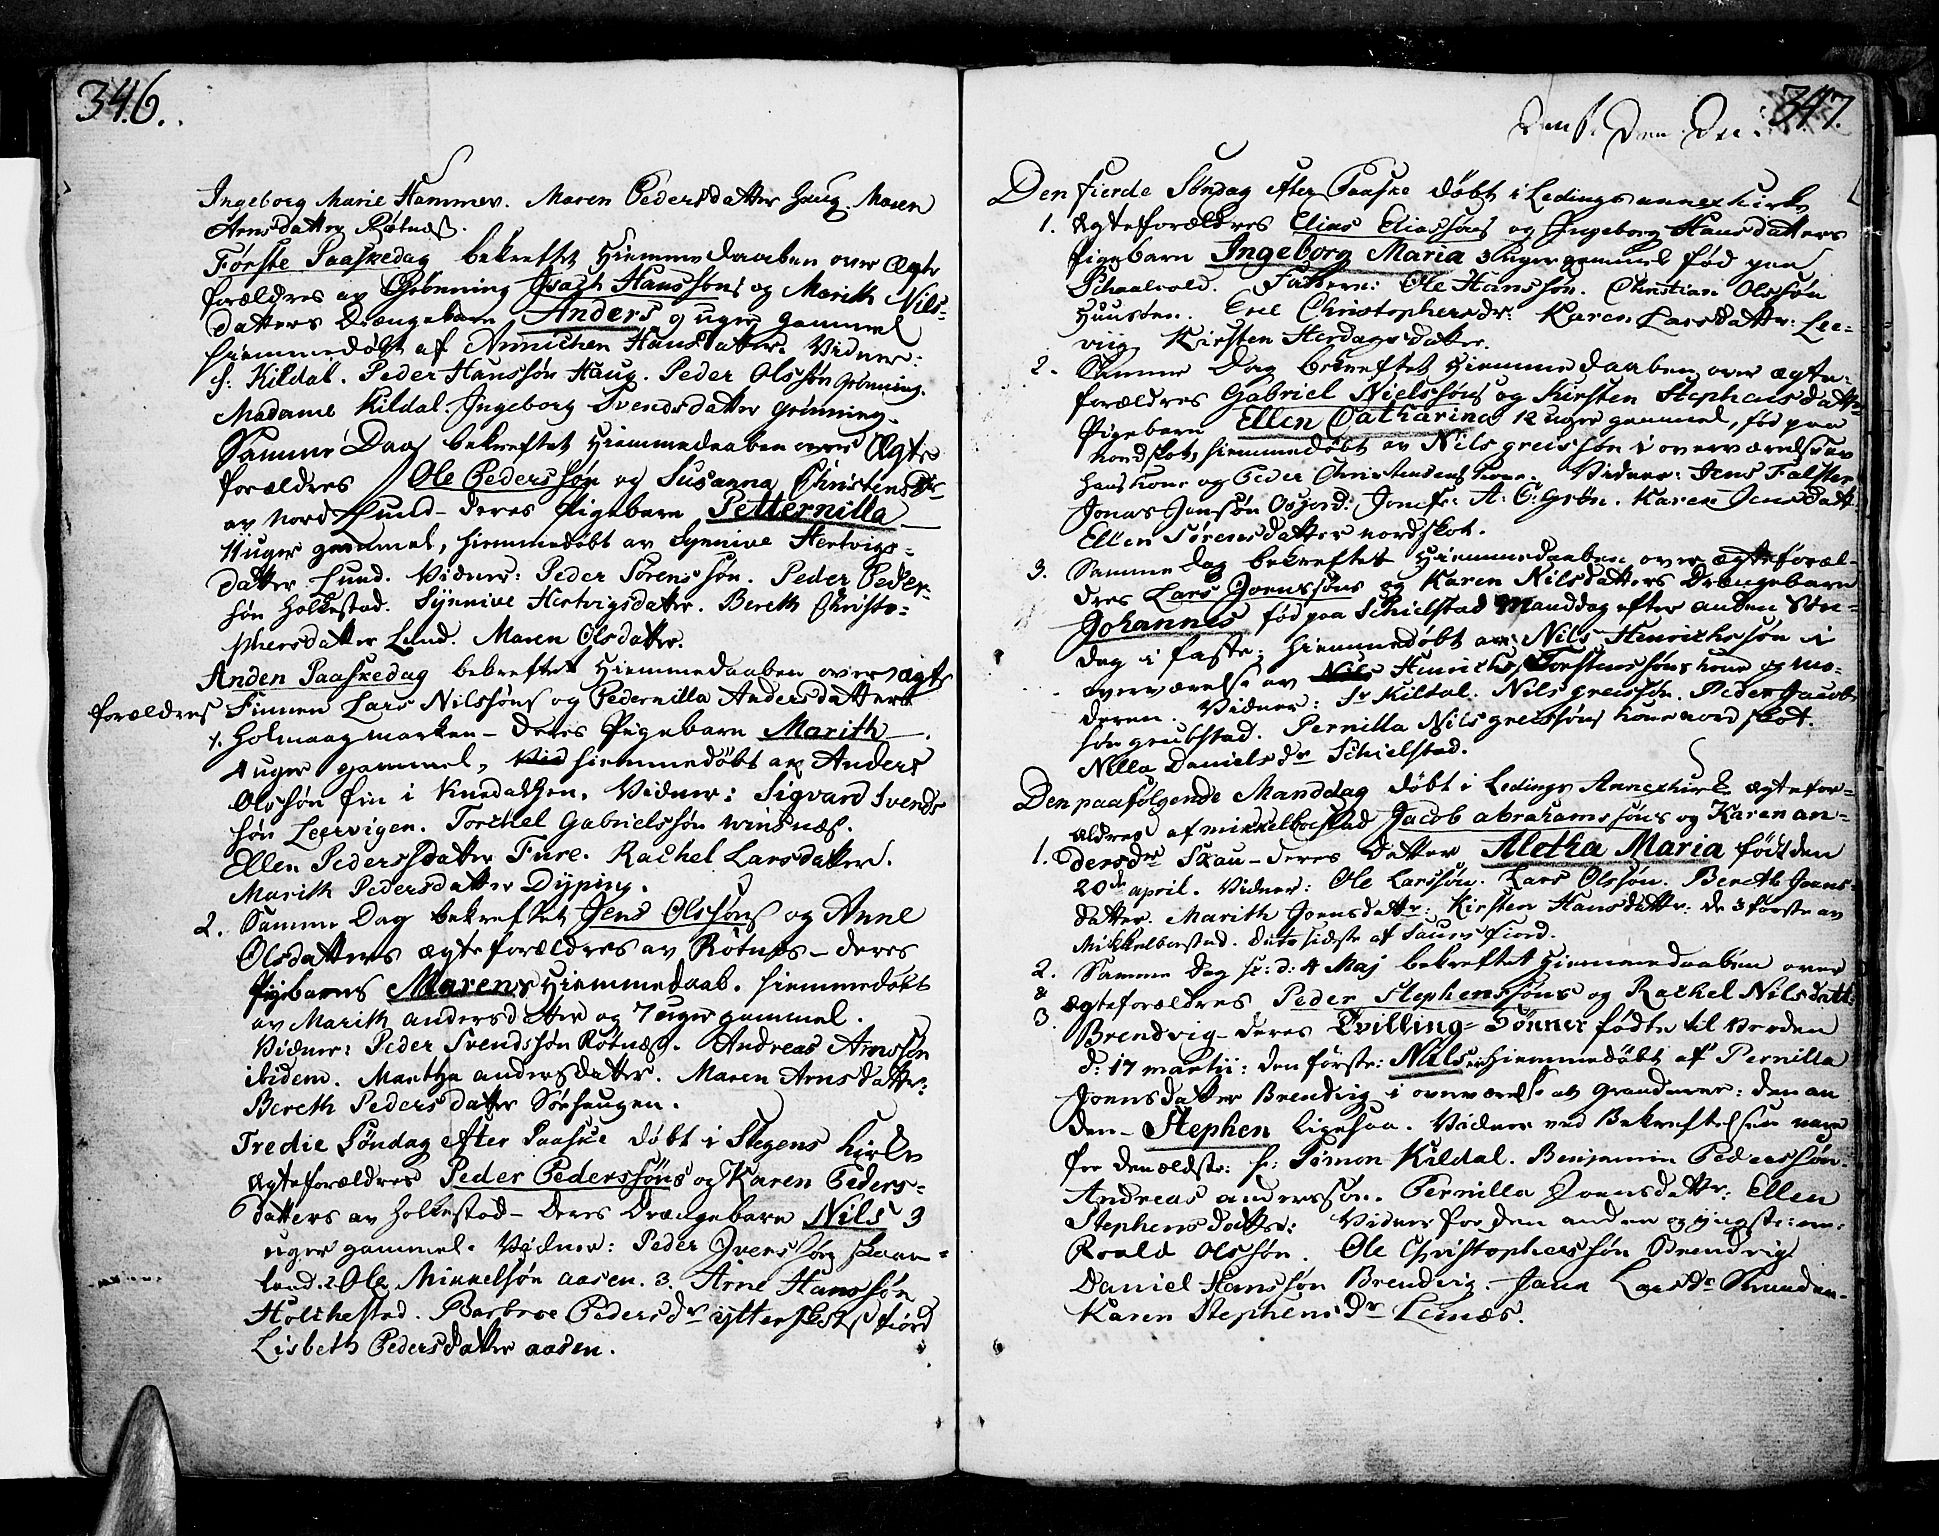 346.
Ingeborg Marie Hammer. Maren Pedersdatter Haug. Maren
Arnsdatter Røtnæs.
Første Paaskedag bekreftet Hiemmedaaben over Ægte
forældres av Grønning Isach Hanssøns og Marith Nils-
datters Drængebarn Anders 9 uger gammel
hiemmedøbt af Annichen Hansdatter. Vidner:
Kildal. Peder Hanssøn Haug. Peder Olssøn Grønning.
Madame Kildal. Ingeborg Svendsdatter Grønning.
Samme Dag bekreftet Hiemmedaaben over Ægte
forældres Ole Pederssøn og Susanna Christensdr
av Nord Lund - deres Pigebarn Petternilla
11 uger gammel, hiemmedøbt av Synnive Hertvigs-
datter Lund. Vidner: Peder Sørenssøn. Peder Peder-
søn Holkestad. Synnive Hertvigsdatter. Bereth Christo-
phersdatter Lund. Maren Olsdatter.
Anden Paaskedag bekreftet Hiemmedaaben over Ægte
forældres Finnen Lars Nilssøns og Pedernilla Andersdatters
1. Holmaagmarken - deres Pigebarn Marith
4 uger gammel, hiemmedøbt av Anders
Olssøn fin i Vidner: Sigvard Svends
søn Leervigen. Torchel Gabrielssøn Winsnæs.
Ellen Pedersdatter Fure. Rachel Larsdatter.
Marith Pedersdatter Dyping.
2. Samme Dag bekreftet Jens Olssøns og Anne
Olsdatters ægteforældres av Røtnes - deres
Pigebarns Marens Hiemmedaab. hiemmedøbt
av Marith Andersdatter og 7 uger gammel.
Vidner: Peder Svendssøn Røtnæs. Andreas Arnssøn
ibidem. Martha Andersdatter. Maren Arnsdatter:
Bereth Pedersdatter Sørhaugen.
Tredie Søndag efter Paaske døbt i Stegens Kirke
Ægteforældres Peder Pederssøns og Karen Peders-
datters av Holkestad - deres Drængebarn Nils 3
uger gammel. Vidner: Peder Iverssøn Skaan-
land. 2 Ole Mikkelsøn Aasen. 3. Arne Hanssøn
Holchestad. Barbroe Pedersdr ytter fiord
Lisbeth Pedersdatter Aasen.
347.
Den fierde Søndag efter Paaske døbt i Ledings annexkirke
1. Ægteforældres Elias Eliassøns og Ingeborg Hansdatters
Pigebarn Ingeborg Maria 3 uger gammel fød paa
Schaalvold. Faddere: Ole Hanssøn. Christian Olssøn
Christophersdr: Karen Larsdatter: Lee-
viig Kirsten Herdagsdatter.
2. Samme Dag bekreftet Hiemmedaaben over Ægte-
forældres Gabriel Nielssøns og Kirsten Stephensdatters
Pigebarn Ellen Catharina 12 uger gammel, fød paa
Nordskot, hiemmedøbt av Nils Greissøn i overværelse av
hans Kone og Peder Christensens Kone. Vidner: Jens Falster
Jonas Jonsøn Osjord: Jomfr: A: C: Grøn. Karen Jensdatt
Ellen Sørensdatter Nordskot.
3. Samme Dag bekreftet Hiemmedaaben over Ægteforæl-
dres Lars Joenssøns og Karen Nilsdatters Drængebarn
Johannes fød paa Schielstad Manddag efter anden Søn-
dag i faste, hiemmedøbt av Nils Henrichssøn i
overværelse av Torstenssøns kone og Mo-
deren. Vidner: Sr Kildal. Nils Greissøn. Peder Jacob
søn Grubstad. Pernilla Nils Greissøns kone Nordskot.
Nilla Danielsdr Schielstad.
Den paafølgende Manddag døbt i Ledings Annexkirke Ægtefor-
1. ældres af Mikkelborstad Jacob Abrahamssøns og Karen An-
dersdr Skau - deres Datter Aletha Maria fødd den
20de april. Vidner: Ole Larssøn. Lars Olssøn. Bereth Joens-
datter. Marith Joensdatter: Kirsten Hansdatter: de 3 første av
Mikkelborstad. sidste af Saursfiord.
2. Samme Dag d: 4 Maj bekreftet Hiemmedaaben over
& 3. Ægteforældres Peder Stephenssøns og Rachel Nilsdatt:
Brendvig - deres Tvilling-Sønner fødte til Verden
d: 17 Martii: den første: Nils er hiemmedøbt af Pernilla
Joensdatter Brendvig i overværelse av Grandener: den an
den - Stephen ligesaa. Vidner ved Bekreftelsen vare
for den ældste: Simon Kildal. Benjamin Pederssøn.
Andreas Anderssøn. Pernilla Joensdatter: Ellen
Stephensdatter: Vidner for den anden og yngste:
Roald Olssøn. Ole Christopherssøn Brendvig
Daniel Hanssøn Brendvig. Jana Larsdr
Karen Stephensdr Leinæs.